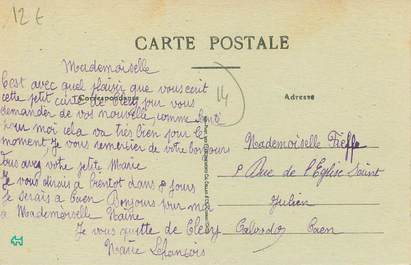 12 €
CARTE POSTALE
Correspondance
Adresse
14
Mademoiselle
C'est avec quel plaisir que vous ecrit
cette petit carte de Clecy pour vous
demander de vos nouvelle comme santé
pour moi cela va très bien pour le
moment je vous remercier de votre bonjours
avez votre petite Marie
Je vous dirais a bientot dans 8 jours
Je serais a Caen Bonjours pour moi
a Mademoiselle
Je vous quitte de Clecy
Marie Lefrançois
Mademoiselle Fieffe
Rue de l'Eglise Saint
Julien
Calvados Caen